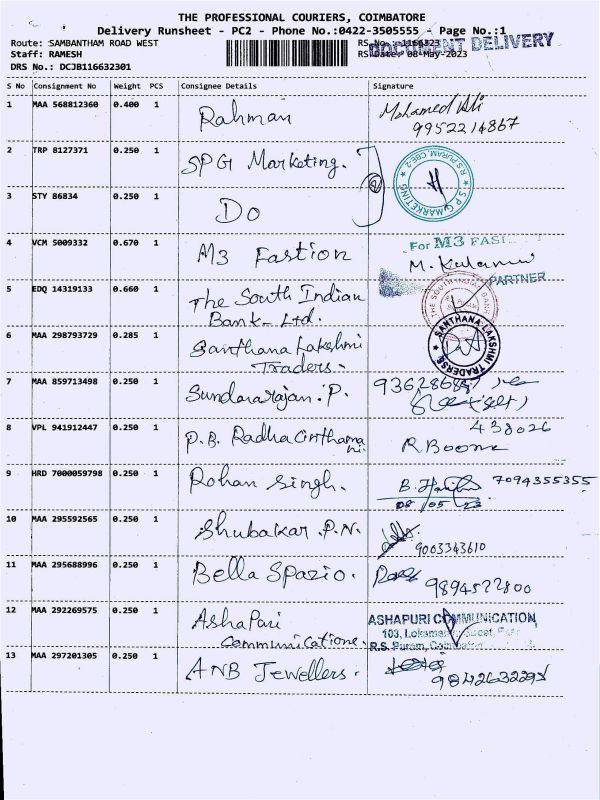 THE PROFESSIONAL COURIERS, COIMBATORE
Delivery Runsheet - PC2 - Phone No.:0422-3505555 - Page No.:1
Route: SAMBANTHAM ROAD WEST RS No.:1166323
DOCUMENT DELIVERY
Staff: RAMESH RS Date: 08-May-2023
DRS No.: DCJB116632301
S No Consignment No Weight PCS Consignee Details Signature
1 MAA 568812360 0.400 1 Rahman Mohamed Ali
9952214867
2 TRP 8127371 0.250 1 SPG Marketing.
S P G MARKETING R.S.PURAM, CBE-2
3 STY 86834 0.250 1 Do
4 VCM 5009332 0.670 1 M3 Fastion For M3 FASI
PARTNER
5 EDQ 14319133 0.660 1 The South Indian
Bank Ltd.
THE SOUTH INDIAN BANK
6 MAA 298793729 0.285 1 Santhana Lakshmi
Traders.
SANTHANA LAKSHMI TRADERSE
7 MAA 859713498 0.250 1 Sundararajan.P.
8 VPL 941912447 0.250 1 P.B. Radha 438026
9 HRD 7000059798 0.250 1 Rohan Singh. 7094355355
08/05/23
10 MAA 295592565 0.250 1 Shubakar.P.N.
9003343610
11 MAA 295688996 0.250 1 Bella Spazio.
9894522800
12 MAA 292269575 0.250 1 Ashapari
Communicatione.
ASHAPURI COMMUNICATION
103,
R.S. Puram,
13 MAA 297201305 0.250 1 ANB Jewellers.